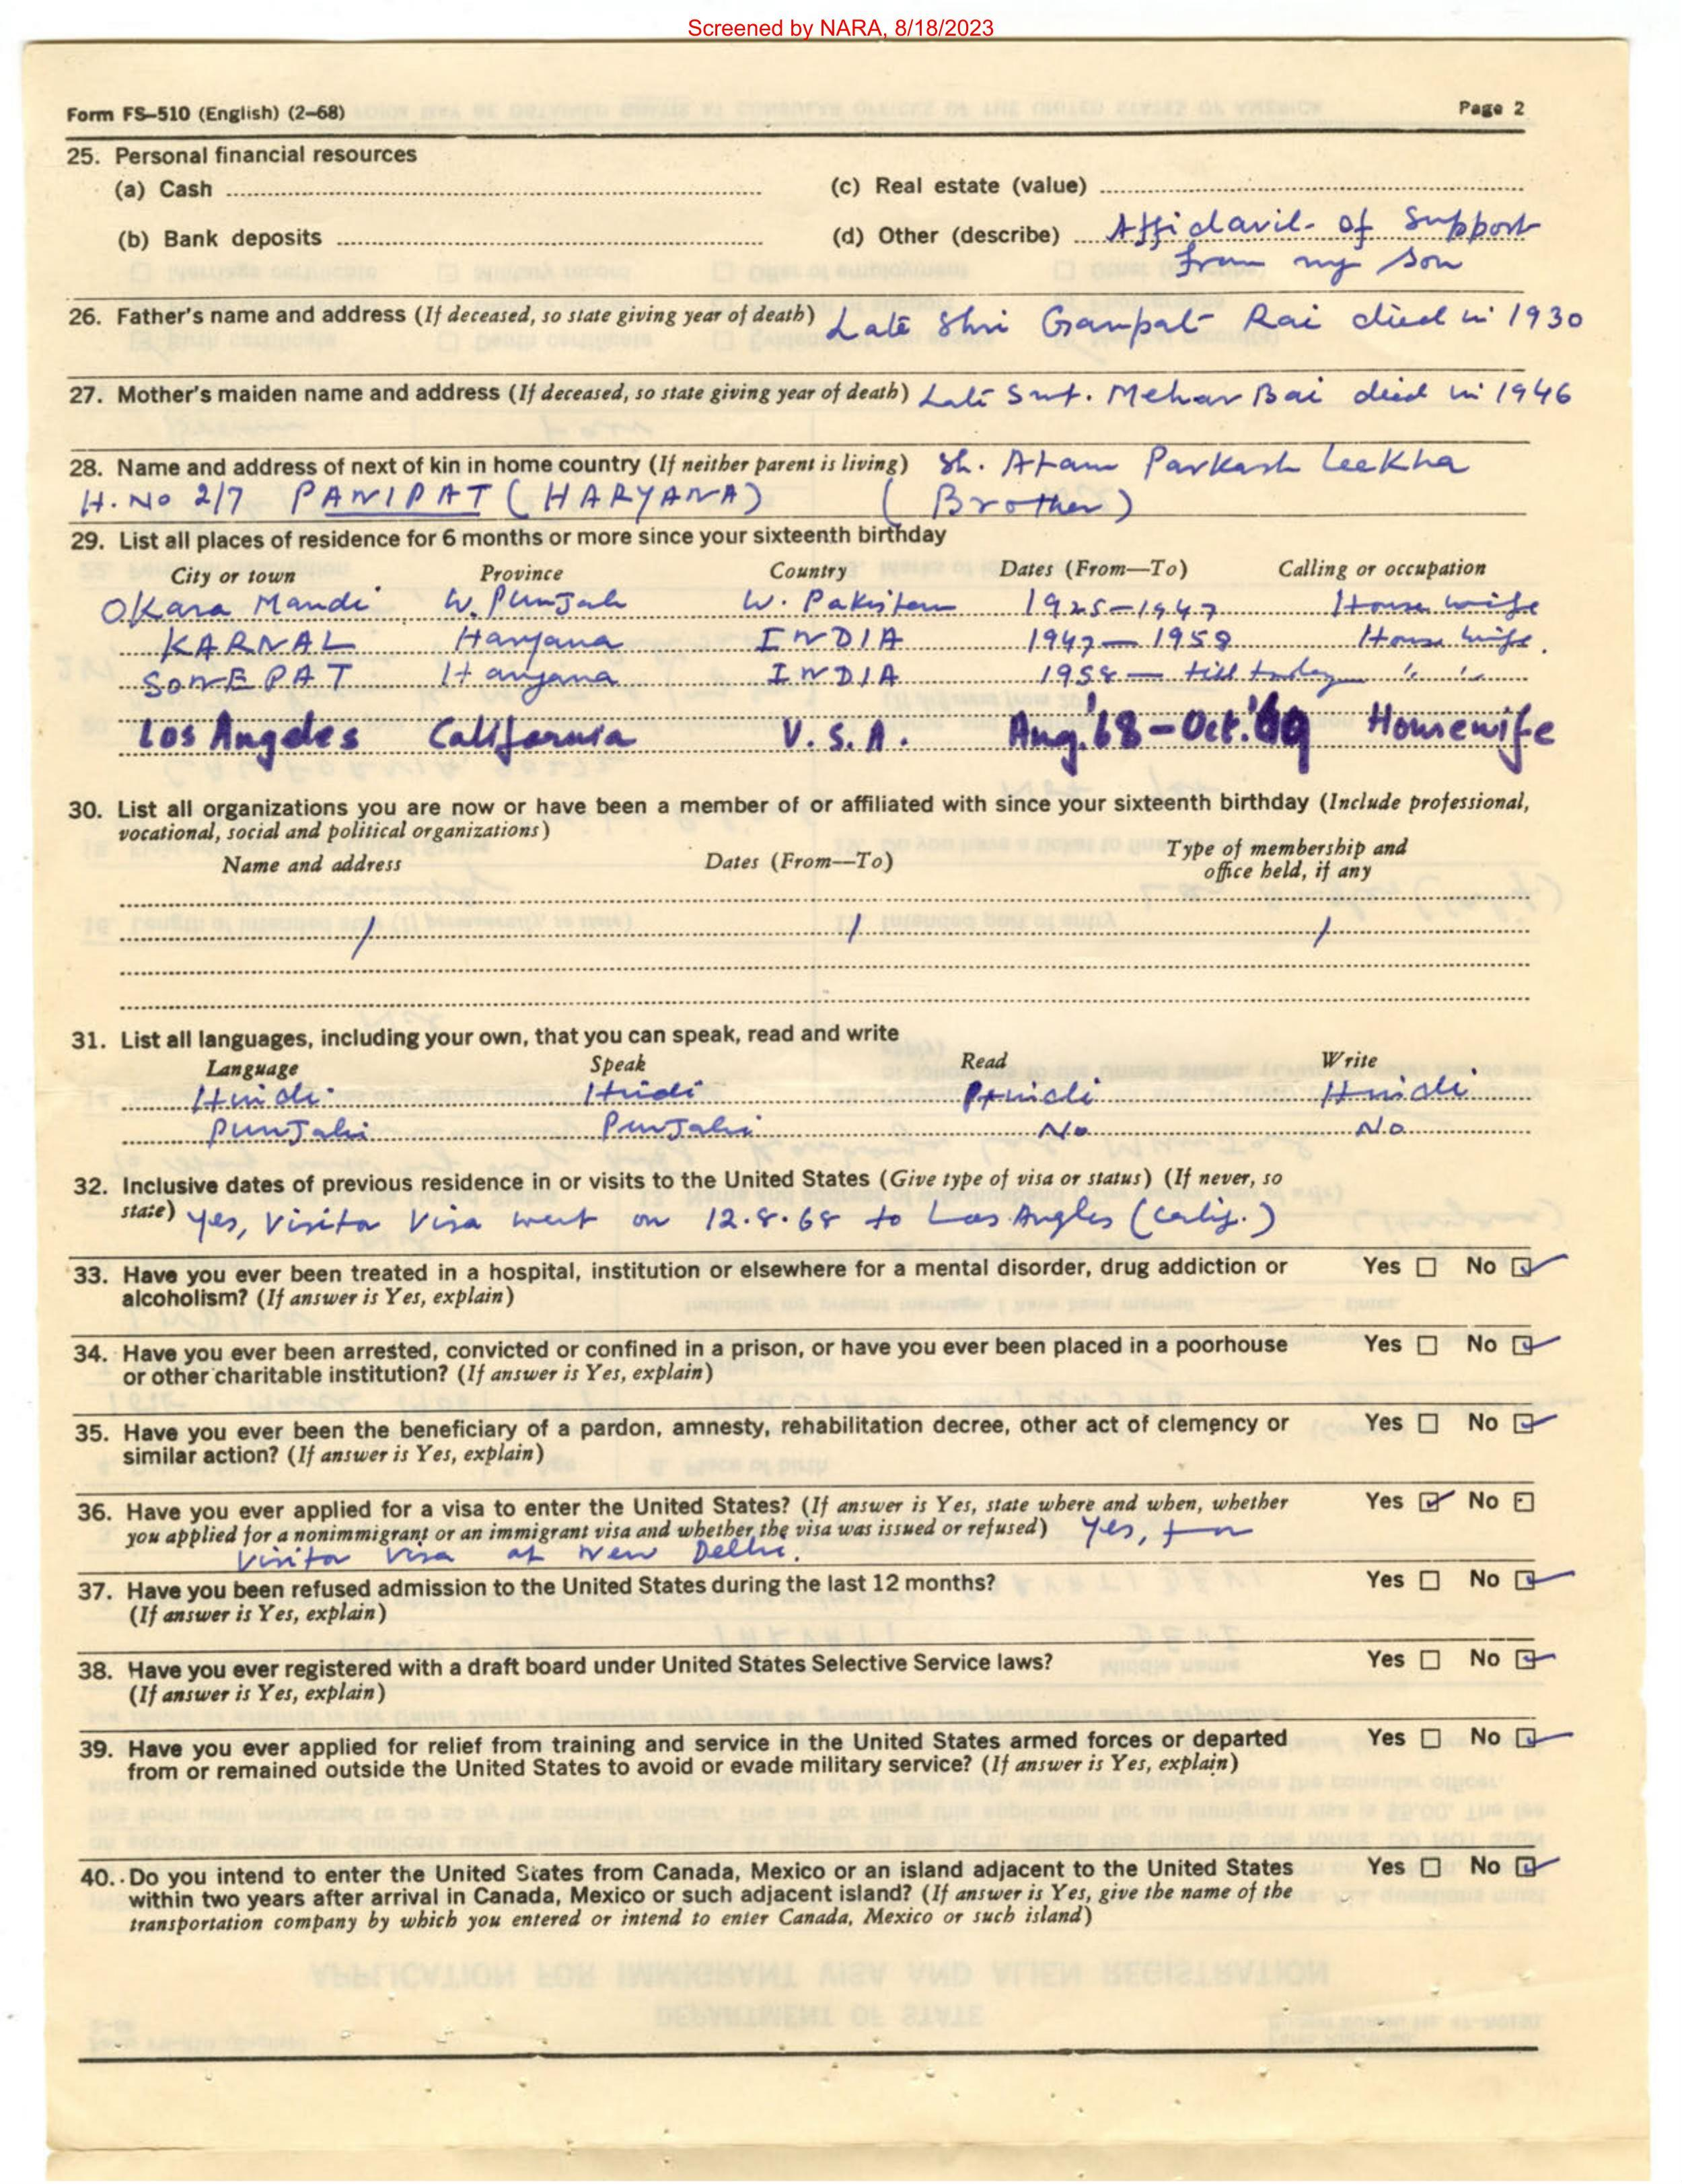 Screened by NARA, 8/18/2023
Form FS–510 (English) (2–68) Page 2
25. Personal financial resources
(a) Cash (c) Real estate (value)
(b) Bank deposits (d) Other (describe) Affidavit of Support
from my son
26. Father's name and address (If deceased, so state giving year of death) Late Shri Ganpat Rai died in 1930
27. Mother's maiden name and address (If deceased, so state giving year of death) Late Smt. Mehar Bai died in 1946
28. Name and address of next of kin in home country (If neither parent is living) Sh. Atam Parkash Leekha
H. No 2/7 PANIPAT (HARYANA) (Brother)
29. List all places of residence for 6 months or more since your sixteenth birthday
City or town Province Country Dates (From—To) Calling or occupation
Okara Mandi W. Punjab W. Pakistan 1925–1947 House wife
KARNAL Haryana INDIA 1947–1958 House wife.
SONEPAT Haryana INDIA 1958 — till today " "
Los Angeles California U.S.A. Aug.'68–Oct.'69 Housewife
30. List all organizations you are now or have been a member of or affiliated with since your sixteenth birthday (Include professional,
vocational, social and political organizations)
Name and address Dates (From—To) Type of membership and
office held, if any
/ / /
31. List all languages, including your own, that you can speak, read and write
Language Speak Read Write
Hindi Hindi Hindi Hindi
Punjabi Punjabi No No
32. Inclusive dates of previous residence in or visits to the United States (Give type of visa or status) (If never, so
state) yes, Visitor Visa went on 12.8.68 to Los Angles (Calif.)
33. Have you ever been treated in a hospital, institution or elsewhere for a mental disorder, drug addiction or Yes No
alcoholism? (If answer is Yes, explain)
34. Have you ever been arrested, convicted or confined in a prison, or have you ever been placed in a poorhouse Yes No
or other charitable institution? (If answer is Yes, explain)
35. Have you ever been the beneficiary of a pardon, amnesty, rehabilitation decree, other act of clemency or Yes No
similar action? (If answer is Yes, explain)
36. Have you ever applied for a visa to enter the United States? (If answer is Yes, state where and when, whether Yes No
you applied for a nonimmigrant or an immigrant visa and whether the visa was issued or refused) Yes, for
Visitor Visa at New Delhi.
37. Have you been refused admission to the United States during the last 12 months? Yes No
(If answer is Yes, explain)
38. Have you ever registered with a draft board under United States Selective Service laws? Yes No
(If answer is Yes, explain)
39. Have you ever applied for relief from training and service in the United States armed forces or departed Yes No
from or remained outside the United States to avoid or evade military service? (If answer is Yes, explain)
40. Do you intend to enter the United States from Canada, Mexico or an island adjacent to the United States Yes No
within two years after arrival in Canada, Mexico or such adjacent island? (If answer is Yes, give the name of the
transportation company by which you entered or intend to enter Canada, Mexico or such island)